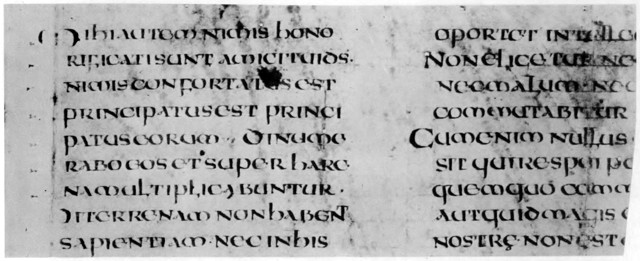 Mihi autem nimis hono
rificati sunt amici tui ds·
nimis confortatus est
principatus est princi
patus eorum · dinume
rabo eos et super hare
na multiplicabuntur ·
terrenam non habent
sapientiam · nec in his
oportet intelle
non
nec malum · nec
commutabitur
Cum enim nullus
sit qui
quem quo comm
aut quid magis
nostrę · non est